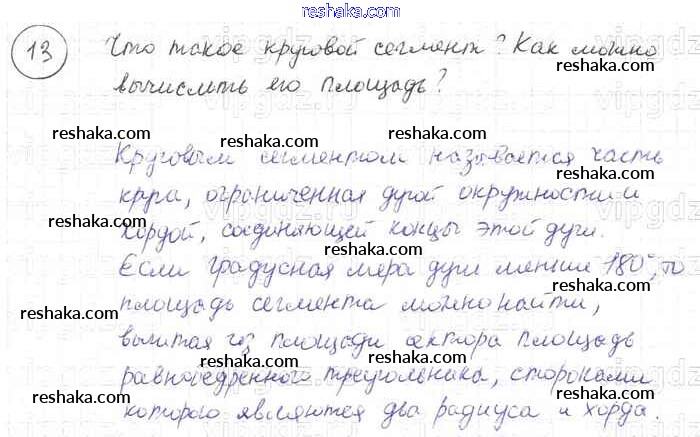 reshaka.com
13 Что такое круговой сегмент? Как можно
вычислить его площадь?
reshaka.com reshaka.com reshaka.com
Круговым сегментом называется часть
круга, ограниченная дугой окружности и
reshaka.com reshaka.com
хордой, соединяющей концы этой дуги.
reshaka.com
Если градусная мера дуги меньше 180°, то
reshaka.com reshaka.com
площадь сегмента можно найти,
reshaka.com
вычитая из площади сектора площадь
reshaka.com reshaka.com
равнобедренного треугольника, сторонами
reshaka.com
которого являются два радиуса и хорда.
reshaka.com reshaka.com